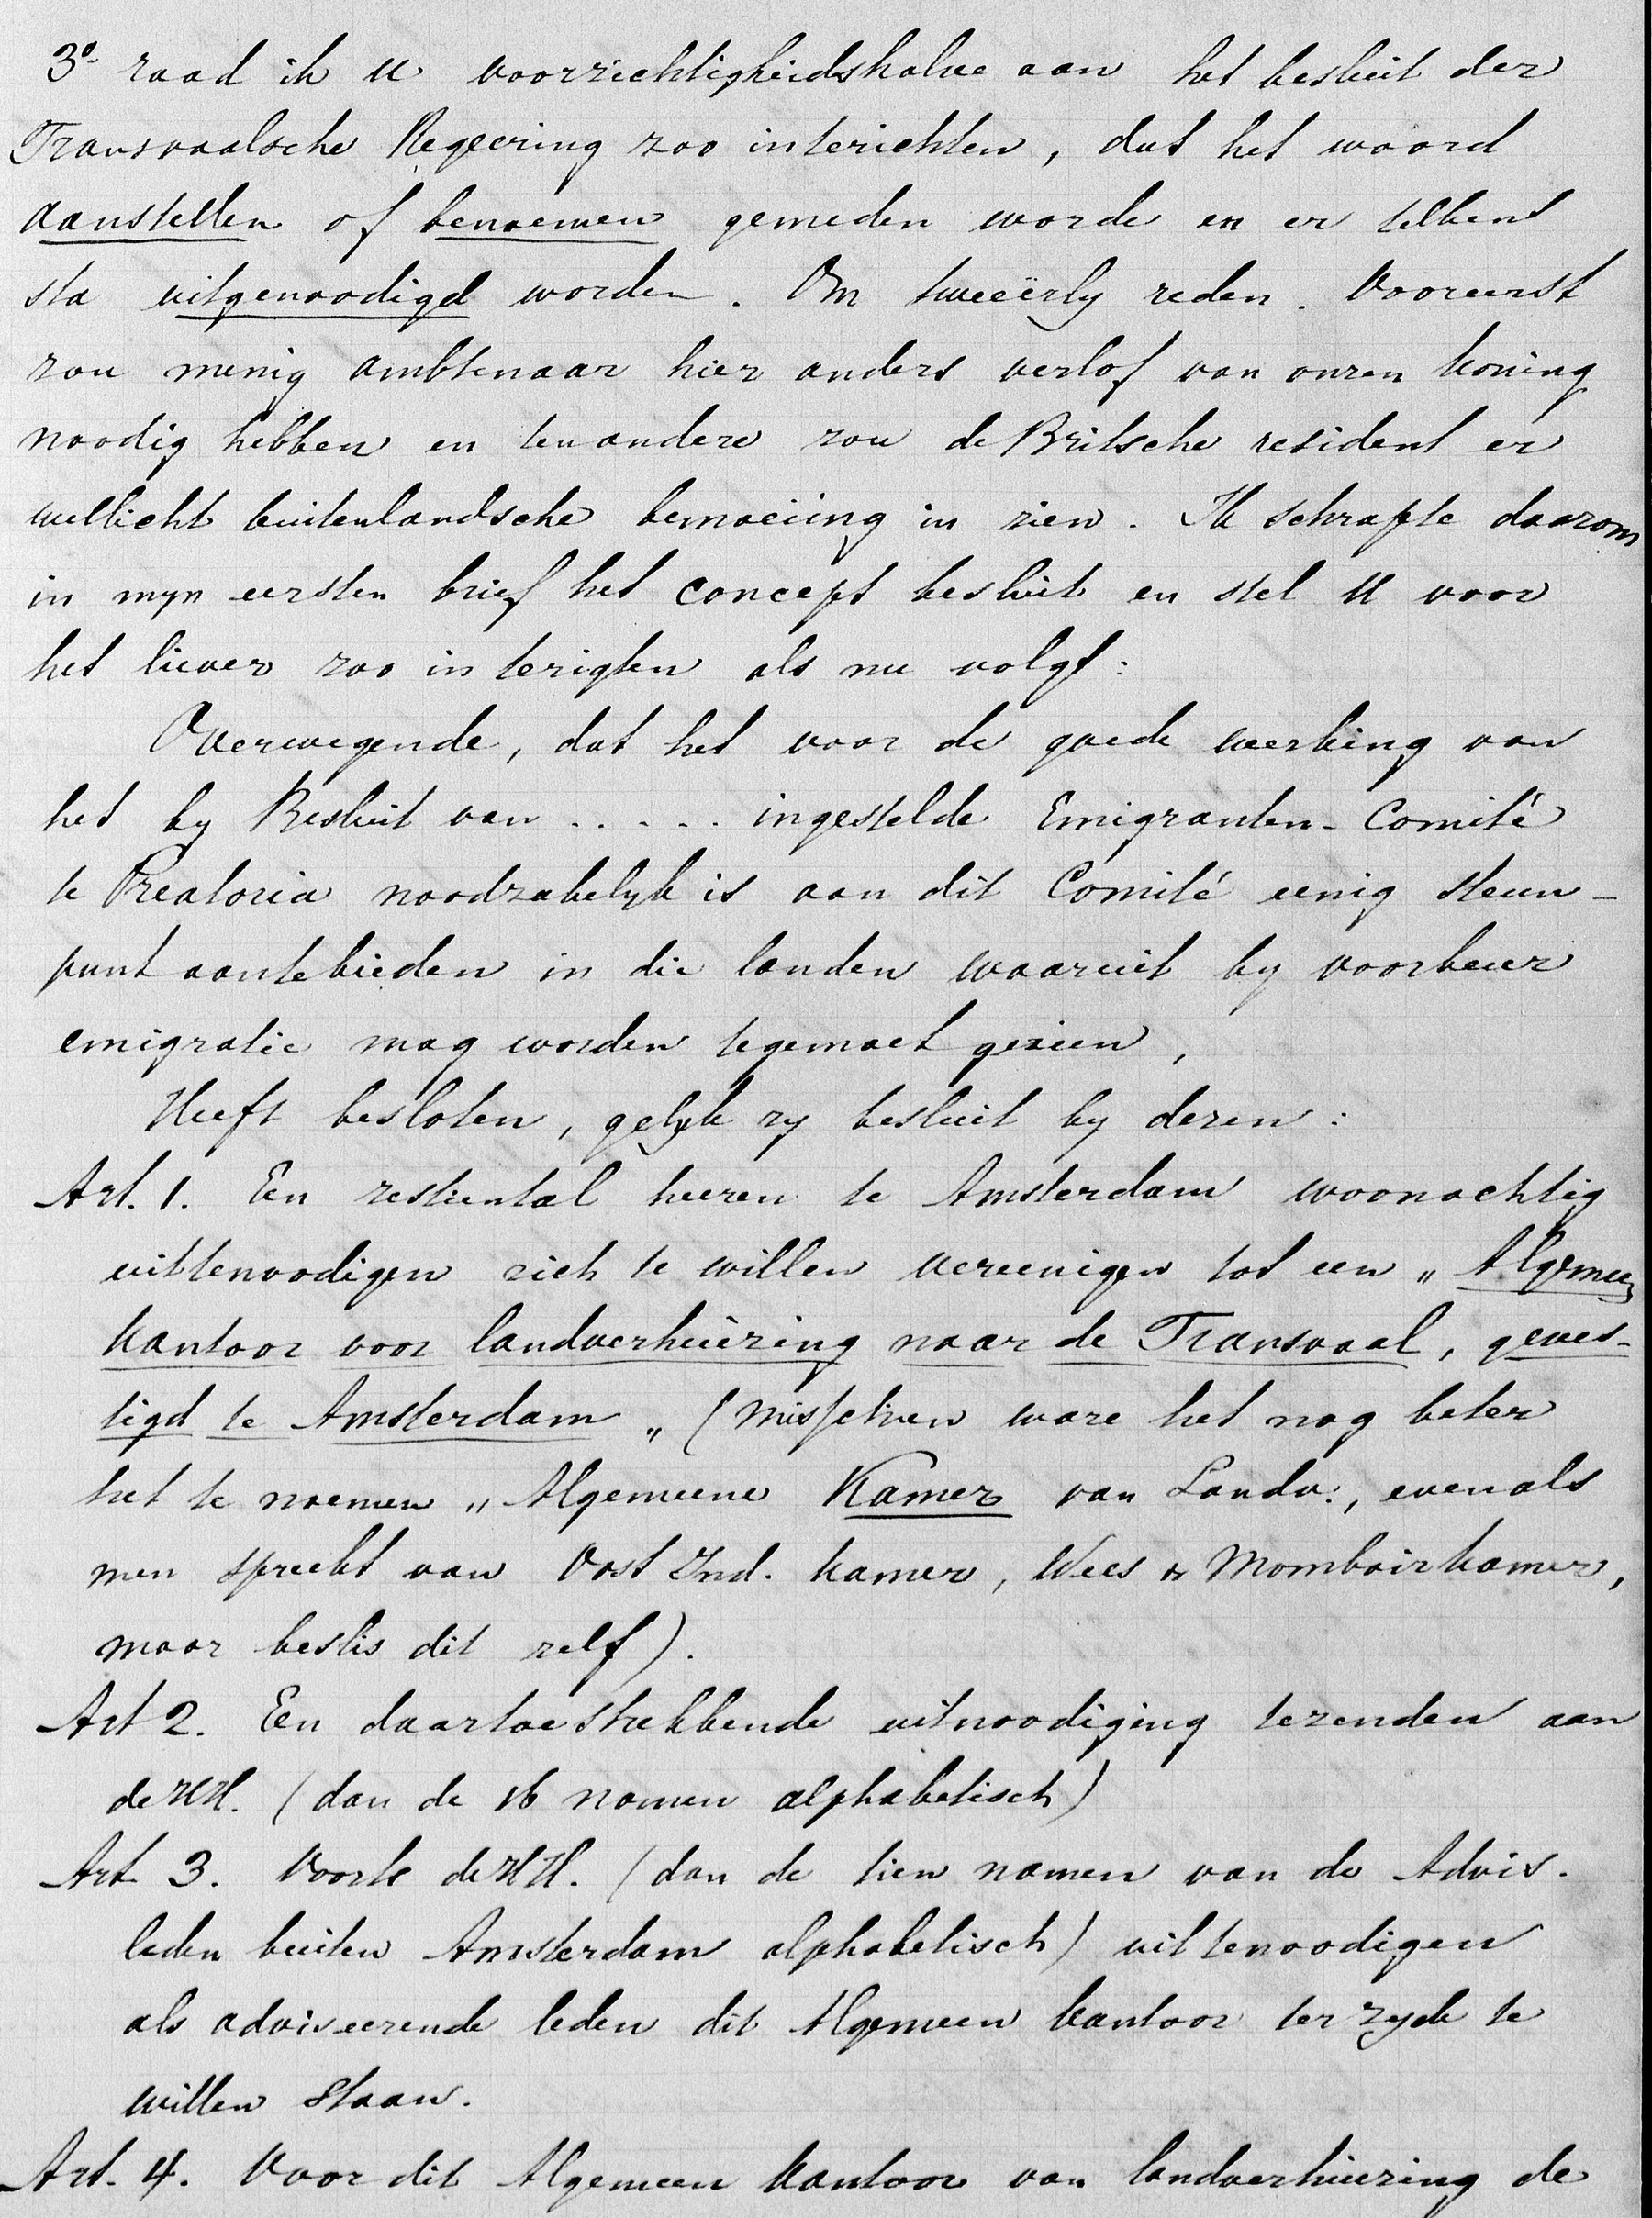 3º raad ik U voorzichtigheidshalve aan het besluit der
Transvaalsche Regeering zoo interichten, dat het woord
aanstellen of benoemen gemeden worde en er telkens
sta uitgenoodigd worden. Om tweeërly reden. Vooreerst
zou menig ambtenaar hier anders verlof van onzen koning
noodig hebben en ten andere zou de Britsche resident er
wellicht buitenlandsche bemoeiing in zien. Ik schrapte daarom
in myn eersten brief het concept besluit en stel U voor
het liever zoo in terigten als nu volgt:
Overwegende, dat het voor de goede werking van
het by Besluit van ..... ingestelde Emigranten-Comité
te Preatoria noodzakelyk is aan dit Comité eenig steun-
punt aantebieden in die landen waaruit by voorkeur
emigratie mag worden tegemoet gezien,
Heeft besloten, gelyk zy besluit by dezen:
Art. 1. Een zestiental heeren te Amsterdam woonachtig
uittenoodigen zich te willen vereenigen tot een „Algemeen
kantoor voor landverhuizing naar de Transvaal, geves-
tigd te Amsterdam„ (Misschien ware het nog beter
het te noemen „Algemeene Kamer van Landv:, evenals
men spreekt van Oost Ind. kamer, Wees & Momboirkamer,
maar beslis dit zelf).
Art 2. Een daartoe strekkende uitnoodiging tezenden aan
de HH. (dan de 16 namen alphabetisch)
Art 3. Voorts de HH. (dan de tien namen van de Advis.
leden buiten Amsterdam alphabetisch) uittenoodigen
als adviseerende leden dit Algemeen kantoor ter zyde te
willen staan.
Art. 4. Voor dit Algemeen kantoor van landverhuizing de